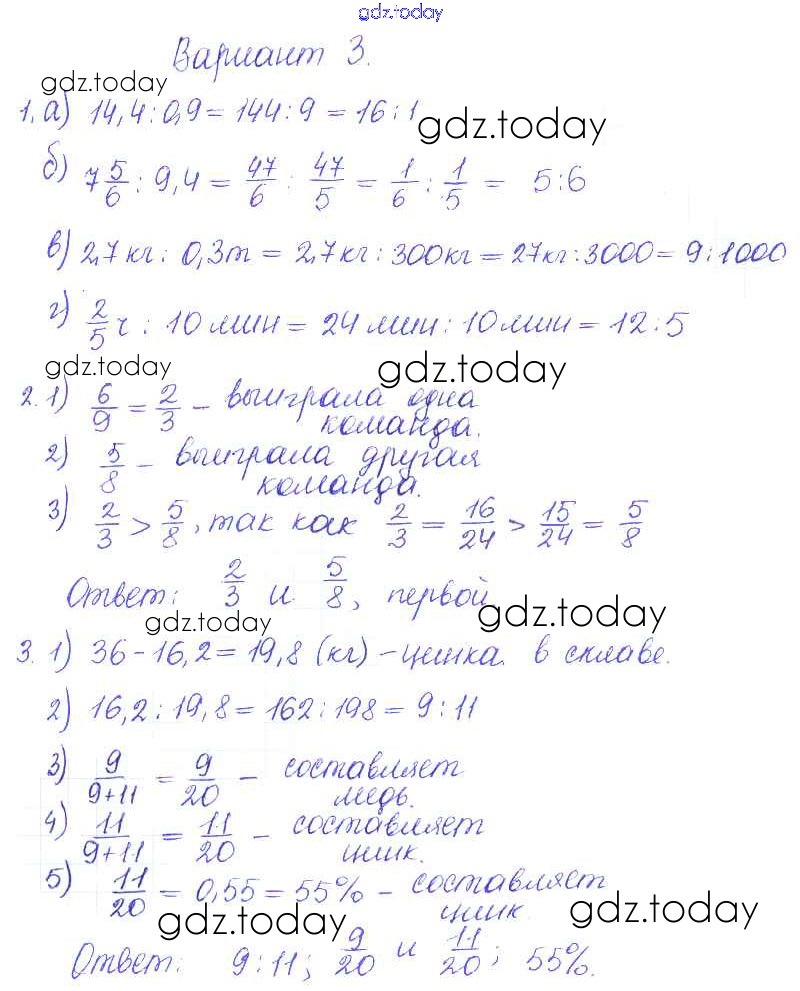 gdz.today
Вариант 3.
gdz.today
1. а) 14,4 : 0,9 = 144 : 9 = 16 : 1
gdz.today
б) 7 5/6 : 9,4 = 47/6 : 47/5 = 1/6 : 1/5 = 5:6
в) 2,7 кг : 0,3 т = 2,7 кг : 300 кг = 27 кг : 3000 = 9 : 1000
г) 2/5 ч : 10 мин = 24 мин : 10 мин = 12 : 5
gdz.today gdz.today
2. 1) 6/9 = 2/3 – выиграла одна
команда.
2) 5/8 – выиграла другая
команда.
3) 2/3 > 5/8, так как 2/3 = 16/24 > 15/24 = 5/8
Ответ: 2/3 и 5/8, первой
gdz.today gdz.today
3. 1) 36 – 16,2 = 19,8 (кг) – цинка в сплаве.
2) 16,2 : 19,8 = 162 : 198 = 9 : 11
3) 9/9+11 = 9/20 – составляет
медь.
4) 11/9+11 = 11/20 – составляет
цинк.
5) 11/20 = 0,55 = 55% – составляет
цинк
gdz.today gdz.today
Ответ: 9 : 11; 9/20 и 11/20; 55%.